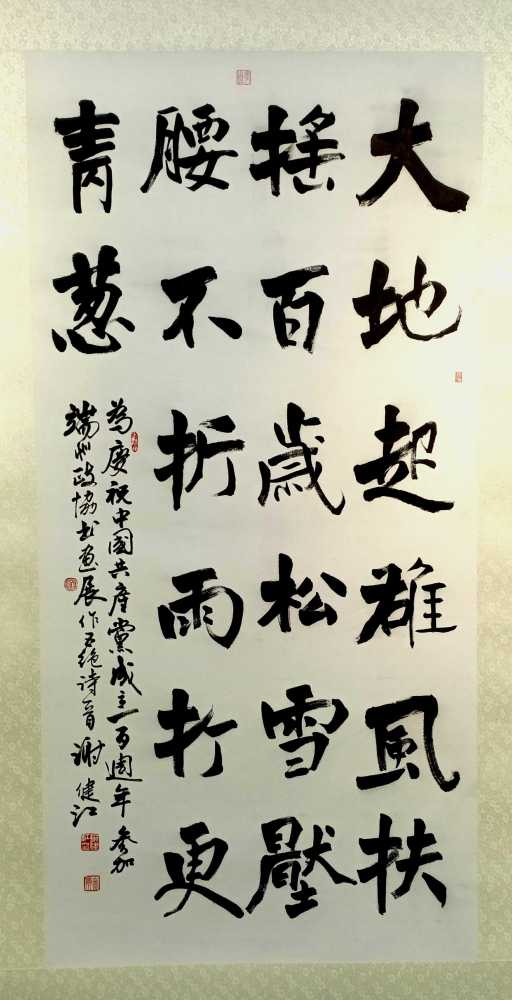 大地起雄風扶
搖百歲松雪壓
腰不折雨打更
青葱
為慶祝中國共產黨成立一百週年參加
端州政協书画展作五绝诗一首谢健江